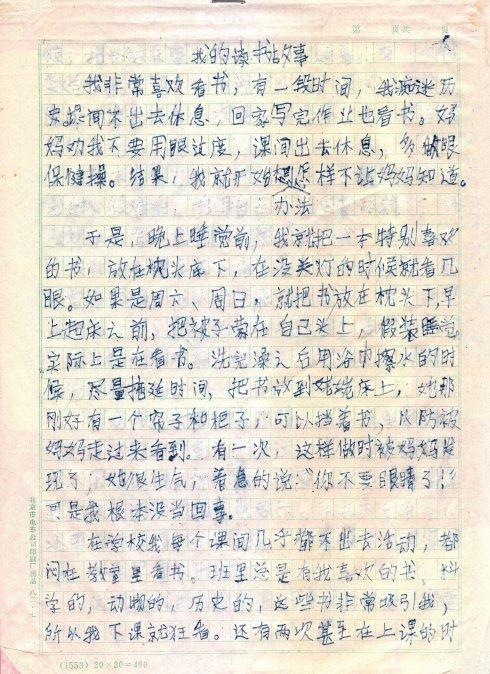 第 页共 页
我的读书故事
我非常喜欢看书，有一段时间，我痴迷历
史，课间不出去休息，回家写完作业也看书。妈
妈劝我不要用眼过度，课间出去休息，多做眼
保健操。结果，我就开始想怎样不让妈妈知道。
办法
于是，晚上睡觉前，我就把一本特别喜欢
的书，放在枕头底下，在没关灯的时候就看几
眼。如果是周六、周日，就把书放在枕头下，早
上起床之前，把被子蒙在自己头上，假装睡觉
实际上是在看书。洗完澡之后用浴巾擦水的时
候，尽量拖延时间，把书放到姥姥床上，她那
刚好有一个帘子和柜子，可以挡着书，以防被
妈妈走过来看到。有一次，这样做时被妈妈发
现了，她很生气，着急的说：“你不要眼睛了！”
可是我根本没当回事。
在学校我每个课间几乎都不出去活动，都
闷在教室里看书。班里总是有我喜欢的书，科
学的，动物的，历史的，这些书非常吸引我，
所以我下课就狂看。还有两次甚至在上课的时
北京市电车公司印刷厂出品 八二·七
(1553) 20×20=400